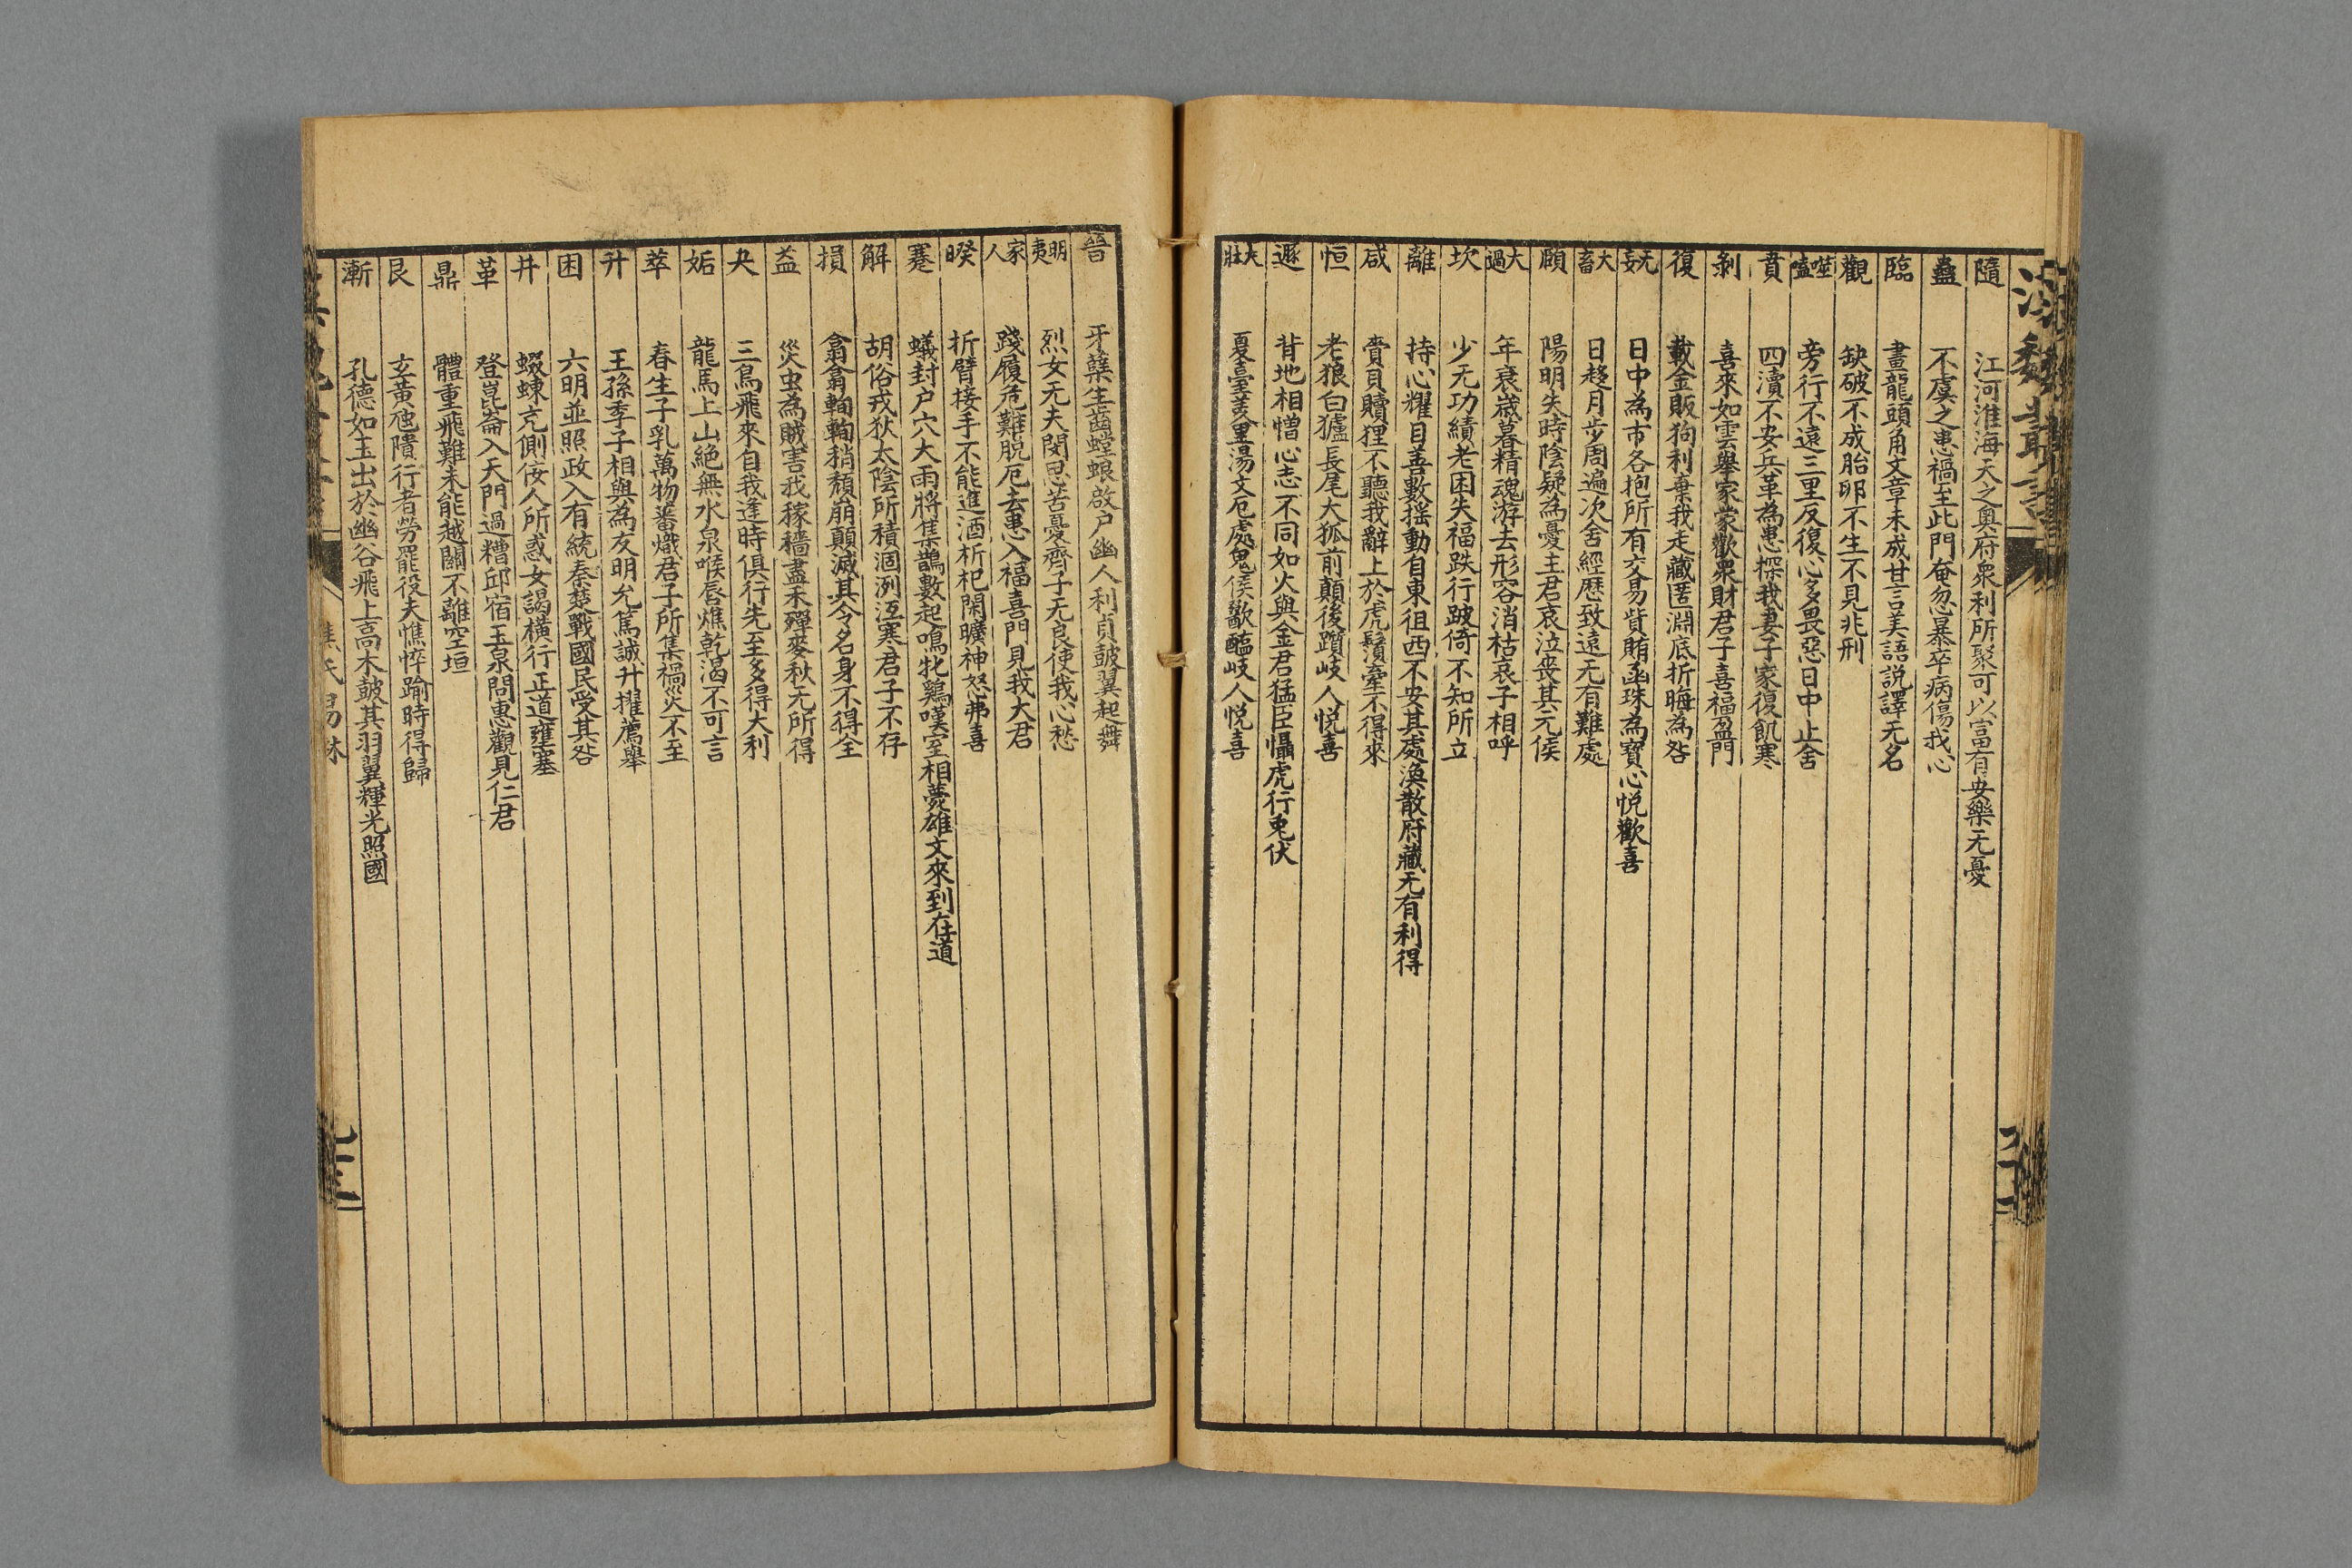 隨 江河淮海天之奧府衆利所聚可以富有安樂无憂
蠱 不虞之患禍至此門奄忽暴卒病傷我心
臨 畫龍頭角文章未成甘言美語説譯无名
觀 缺破不成胎卵不生不見兆刑
噬嗑 旁行不遠三里反復心多畏惡日中止舍
賁 四瀆不安兵革為患掠我妻子家復飢寒
剝 喜來如雲舉家蒙歡衆財君子喜福盈門
復 載金販狗利棄我走藏匿淵底折晦為咎
无妄 日中為市各抱所有交易貲賄函珠為寶心悦歡喜
大畜 日趍月步周遍次舍經歷致遠无有難處
頤 陽明失時陰疑為憂主君哀泣喪其元侯
大過 年衰歲暮精魂游去形容消枯哀子相呼
坎 少无功績老困失福跌行跛倚不知所立
離 持心耀目善數摇動自東徂西不安其處渙散府藏无有利得
咸 賷貝贖狸不聽我辭上於虎鬚牽不得來
恒 老狼白獹長尾大狐前顛後躓岐人悦喜
遯 背地相憎心志不同如火與金君猛臣懾虎行兎伏
大壯 夏臺羑里湯文厄處鬼侯歠醢岐人悦喜
晉 牙蘖生齒螳蜋啟户幽人利貞鼓翼起舞
明夷 烈女无夫閔思苦憂齊子无良使我心愁
家人 踐履危難脱厄去患入福喜門見我大君
睽 折臂接手不能進酒祈祀閑曠神怒弗喜
蹇 蟻封户穴大雨將集鵲數起鳴牝鷄嘆室相薨雄文來到在道
解 胡俗戎狄太陰所積涸冽沍寒君子不存
損 翕翕輷輷稍頹崩顛滅其令名身不得全
益 災虫為賊害我稼穡盡禾殫麥秋无所得
夬 三鳥飛來自我逢時俱行先至多得大利
姤 龍馬上山絶無水泉喉唇燋乾渴不可言
萃 春生孑乳萬物蕃熾君子所集禍災不至
升 王孫季子相與為友明允篤誠升擢薦舉
困 六明並照政入有統秦楚戰國民受其咎
井 蝃蝀充側佞人所惑女謁横行正道壅塞
革 登崑崙入天門過糟邱宿玉泉問惠觀見仁君
鼎 體重飛難未能越關不離空垣
艮 玄黄虺隤行者勞罷役夫憔悴踰時得歸
漸 孔德如玉出於幽谷飛上高木鼓其羽翼輝光照國